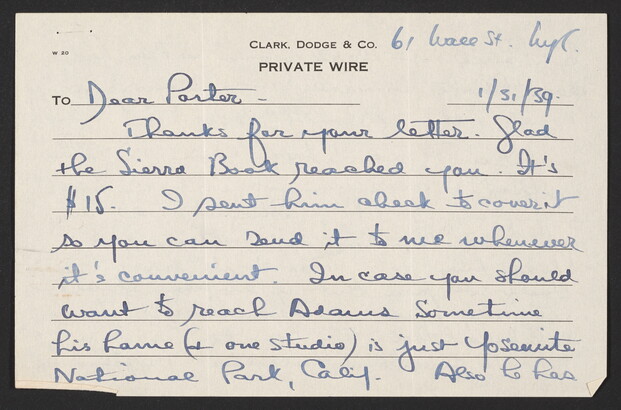 W 20
CLARK, DODGE & CO. 61 Wall St. NYC.
PRIVATE WIRE
TO Dear Porter - 1/31/39.
Thanks for your letter. Glad
the Sierra Book reached you. It's
$15. I sent him check to cover it
so you can send it to me whenever
it's convenient. In case you should
want to reach Adams sometime
his home (& one studio) is just Yosemite
National Park, Calif. Also he has